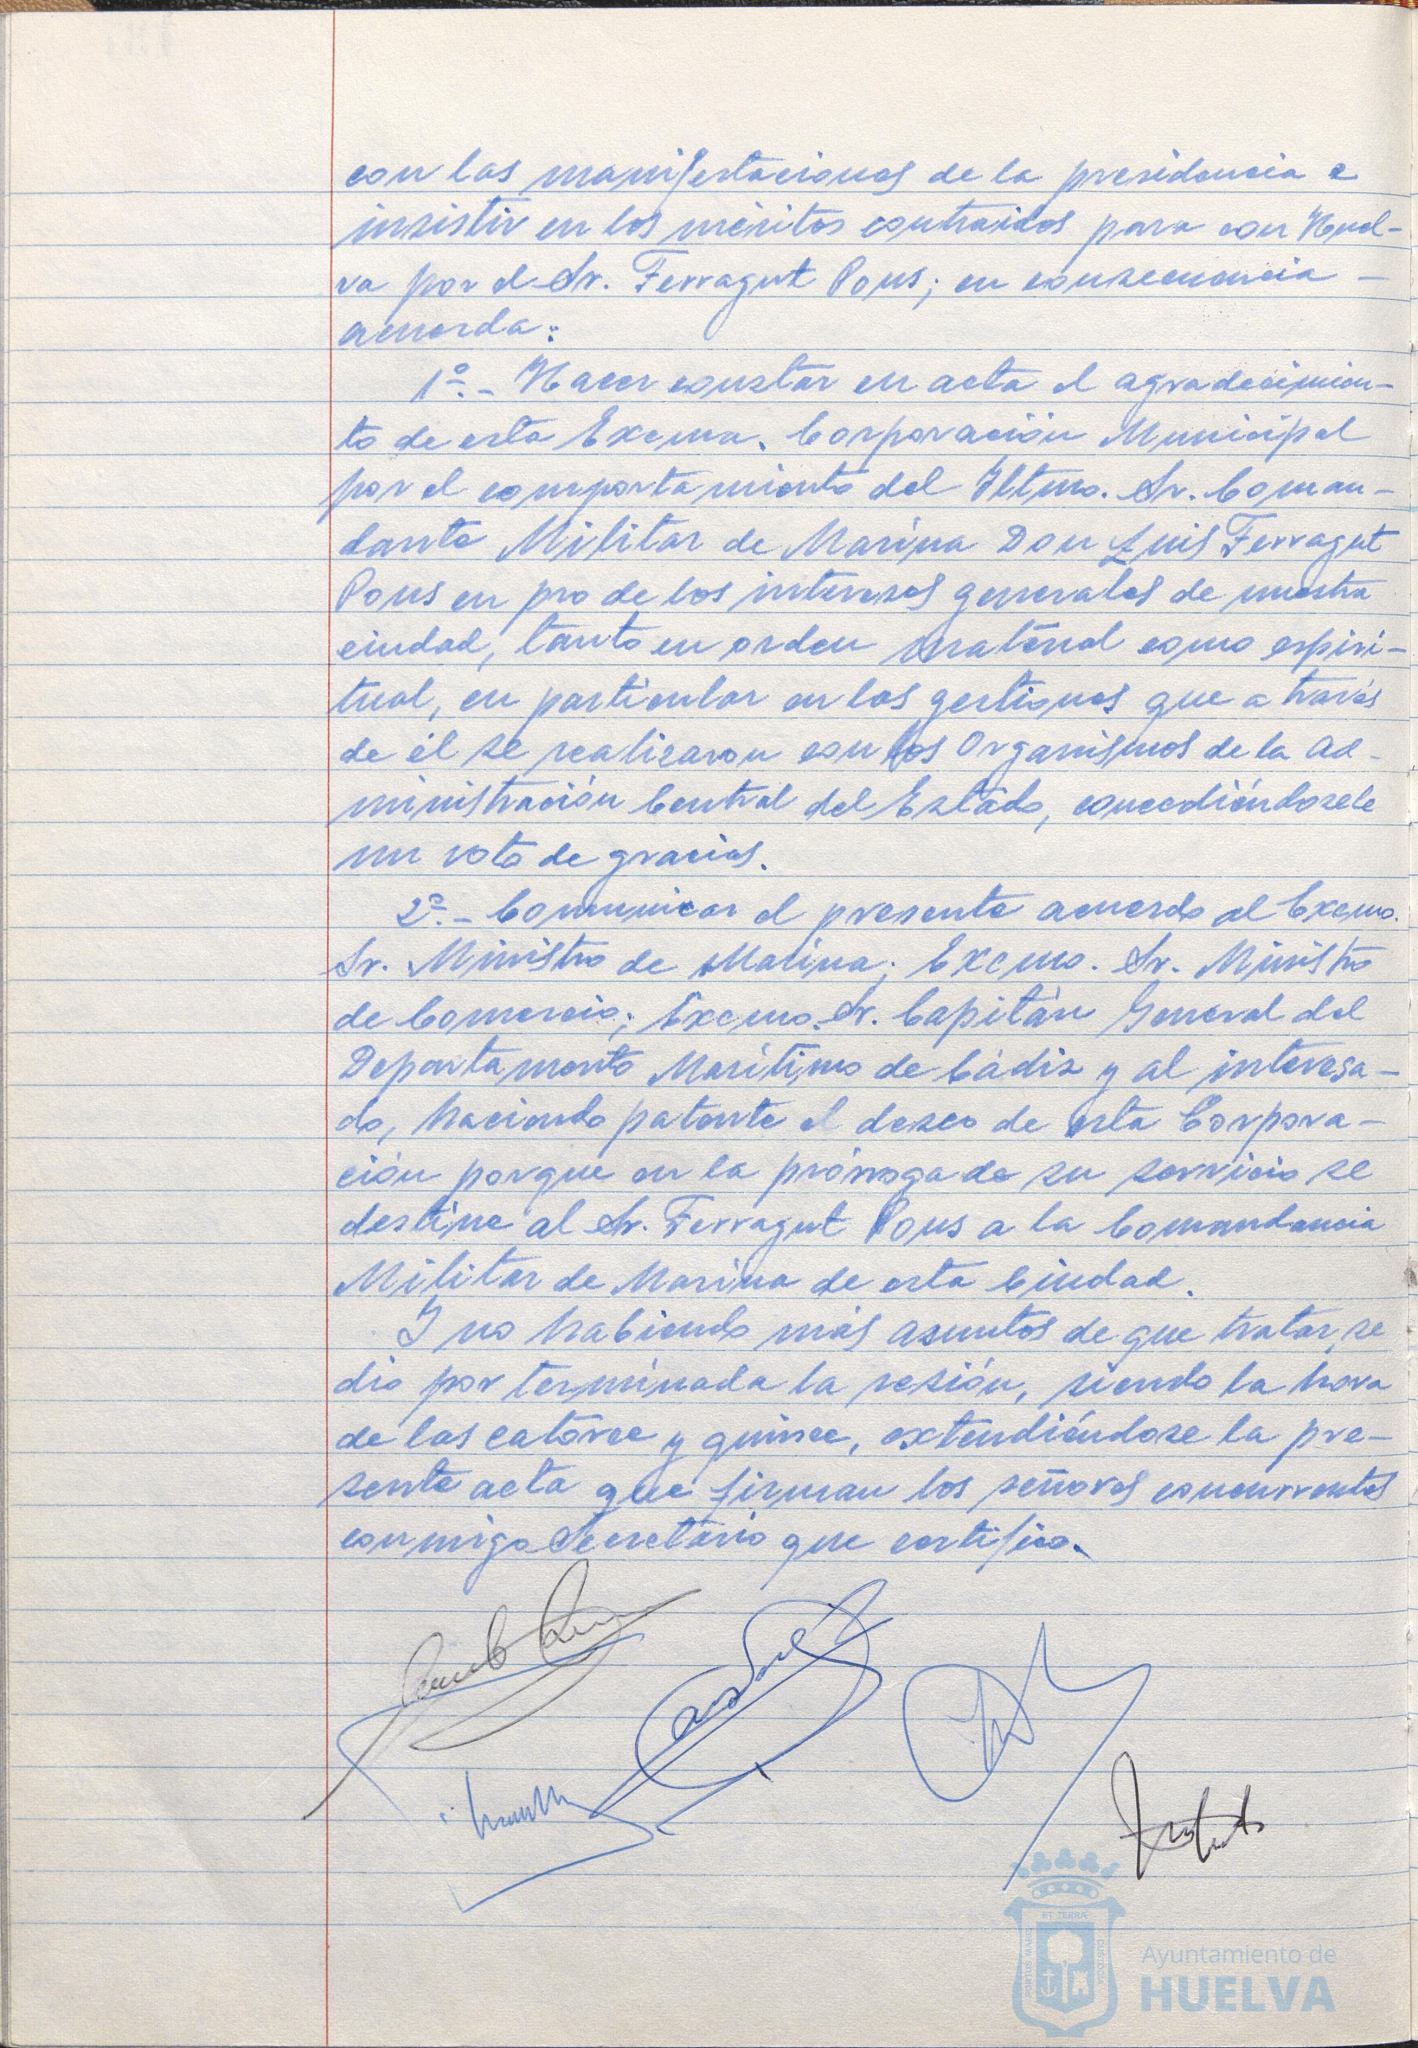 con las manifestaciones de la presidencia e
insistir en los méritos contraidos para con Huel-
va por el Sr. Ferragut Pons; en consecuencia -
acuerda:
1º.- Hacer constar en acta el agradecimien-
to de esta Excma. Corporación Municipal
por el comportamiento del Iltmo. Sr. Coman-
dante Militar de Marina Don Luis Ferragut
Pons en pro de los intereses generales de nuestra
ciudad, tanto en orden material como espiri-
tual, en particular en las gestiones que a través
de él se realizaron con los Organismos de la Ad-
ministración Central del Estado, concediéndosele
un voto de gracias.
2º.- Comunicar el presente acuerdo al Excmo.
Sr. Ministro de Marina; Excmo. Sr. Ministro
de Comercio; Excmo. Sr. Capitán General del
Departamento Marítimo de Cádiz y al interesa-
do, haciendo patente el deseo de esta Corpora-
ción porque en la prórroga de su servicio se
destine al Sr. Ferragut Pons a la Comandancia
Militar de Marina de esta Ciudad.
Y no habiendo más asuntos de que tratar, se
dio por terminada la sesión, siendo la hora
de las catorce y quince, extendiéndose la pre-
sente acta que firman los señores concurrentes
conmigo Secretario que certifico.
ET TERRA
PORTUS MARIS
CUSTODIA
Ayuntamiento de
HUELVA